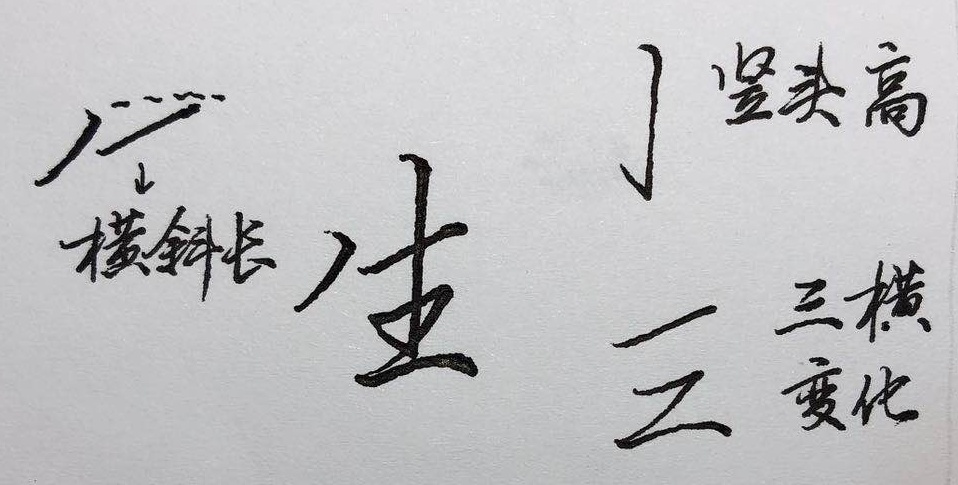 竖头高
横斜长
生
三横
变化